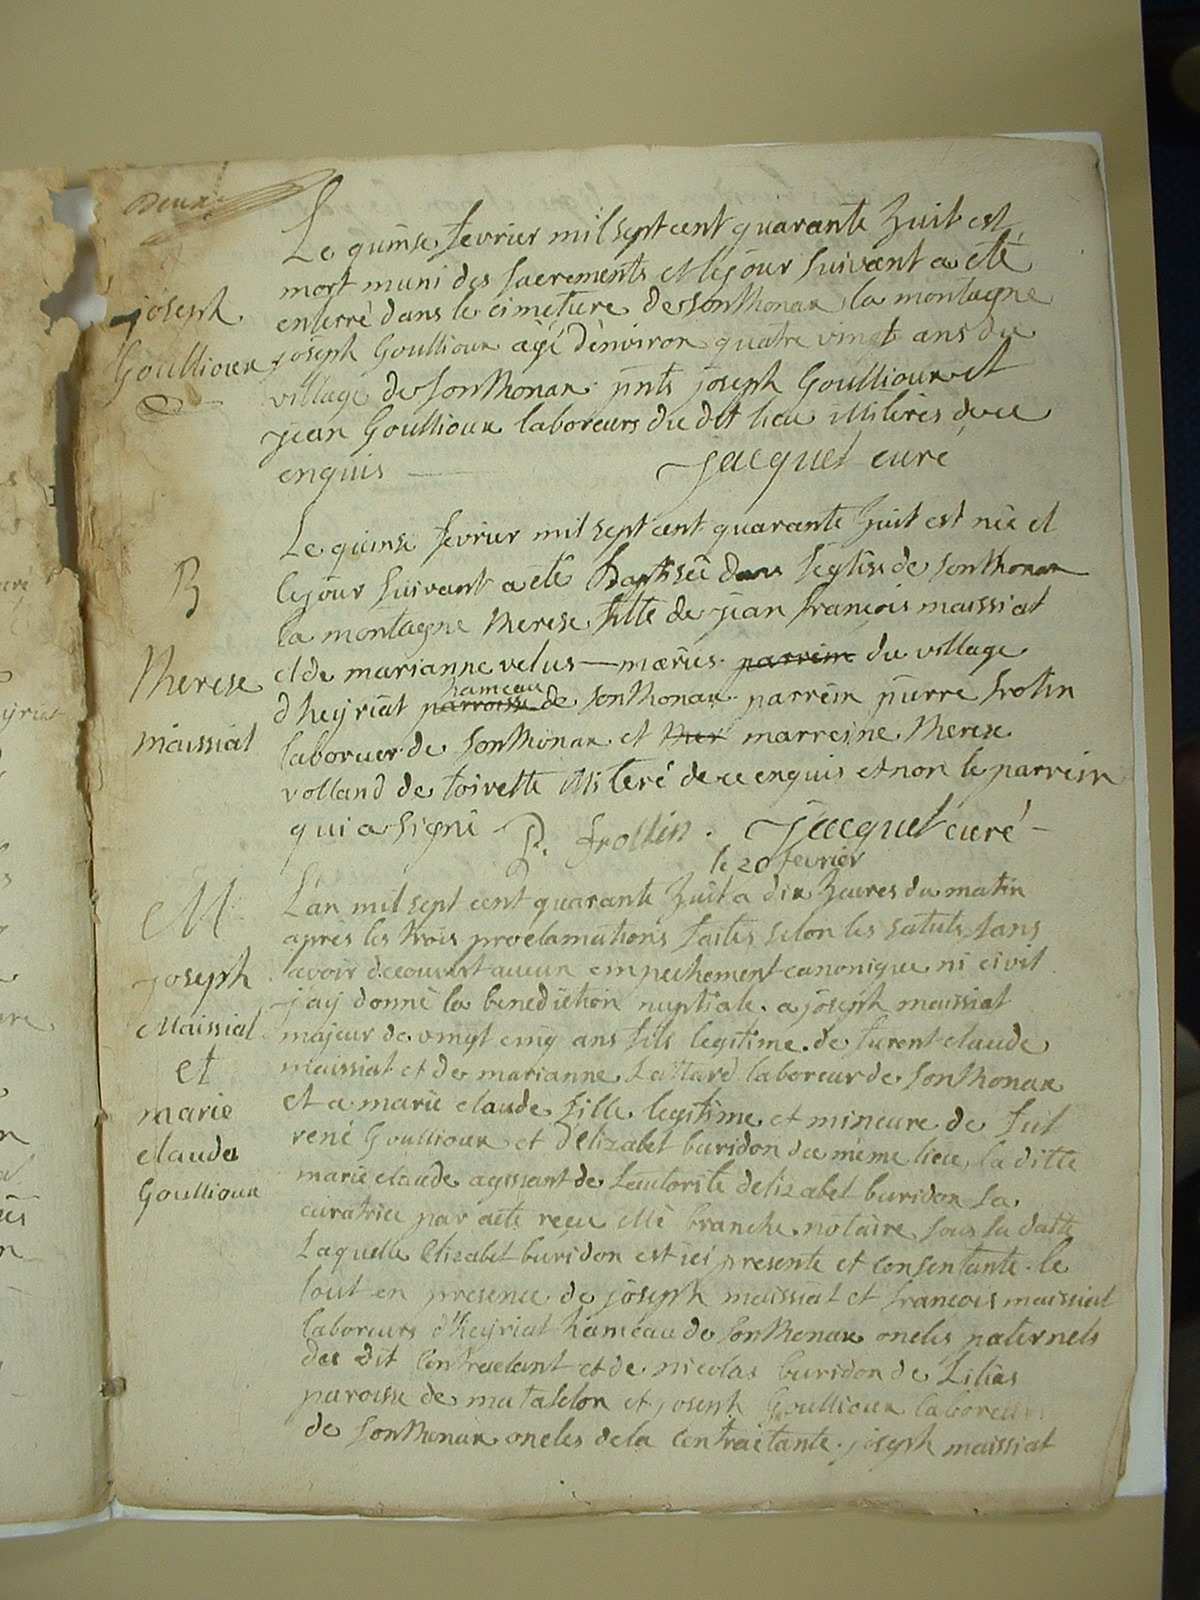 Deux
Le quinse fevrier mil sept cent quarante huit est
mort muni des sacrements et le jour suivant a eté
enterré dans le cimetiere de sonthonax la montagne
joseph
Goullioux
joseph Goullioux agé d'environ quatre vingt ans du
village de sonthonax pnts joseph Goullioux et
jean Goullioux laboreurs du dit lieu illiterés de ce
enquis jacquet curé
Le quinse fevrier mil sept cent quarante huit est née et
B
le jour suivant a eté baptisée dans l'eglise de sonthonax
la montagne therese fille de jean françois maissiat
et de marianne velus mariés parrein du village
therese
maissiat
hameau
d'heyriat parroisse de sonthonax parrein pierre frolin
laboruer de sonthonax et mar marreine therese
volland de toirette illiteré de ce enquis et non le parrein
qui a signé P. frollin. jacquet curé
le 20 fevrier
L'an mil sept cent quarante huit a dix heures du matin
M
après les trois proclamations faites selon les satuts sans
avoir decouvert aucun empechement canonique ni civil
joseph
Maissiat
et
marie
claude
Goullioux
j'ay donné la benediction nuptiale a joseph maissiat
majeur de vingt cinq ans fils legitime de furent claude
maissiat et de marianne Lattard laboreur de sonthonax
et a marie claude fille legitime et mineure de fut
rené Goullioux et d'elizabet buridon du même lieu, la ditte
marie claude agissant de l'autorite d'elizabet buridon sa
curatrice par acte reçu Me branche notaire sous sa datte
Laquelle Elizabet buridon est ici presente et consentante le
tout en presence de joseph maissiat et françois maissiat
laboreurs d'heyriat hameau de sonthonax oncles paternels
du dit contractant et de nicolas buridon de
paroisse de matafelon et joseph Goullioux laboreur
de sonthonax oncles de la contractante joseph maissiat